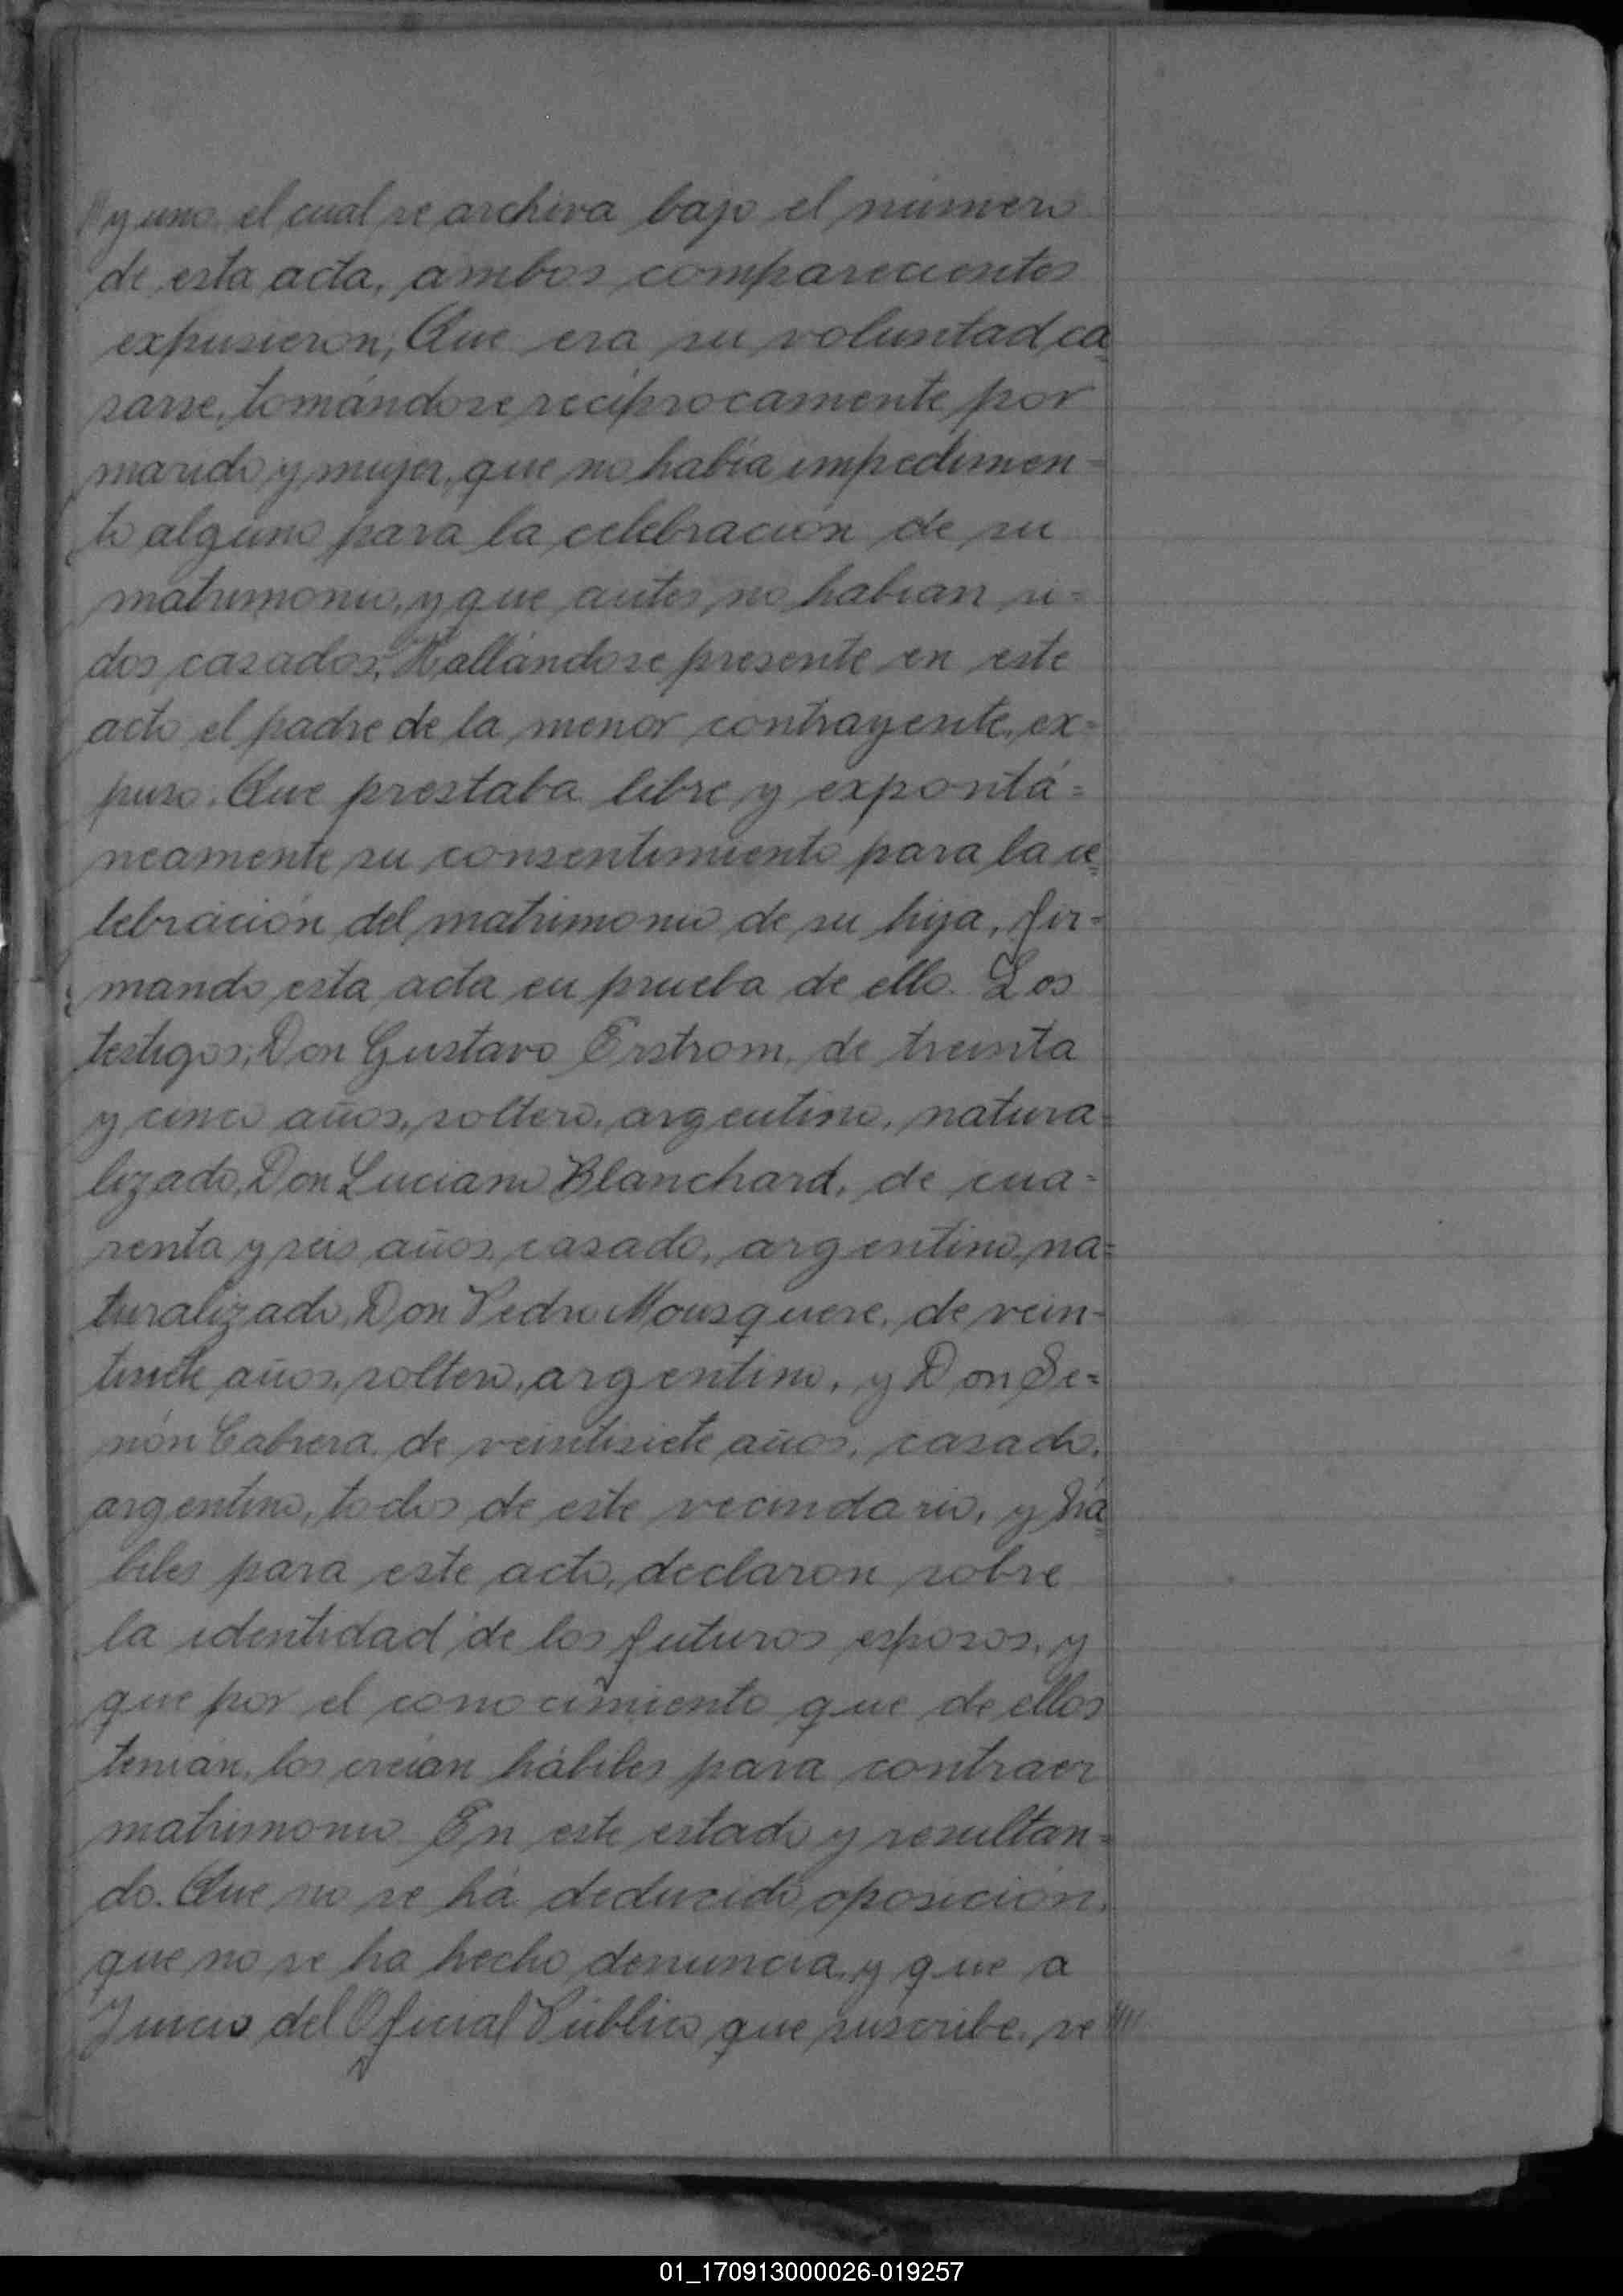 "y uno, el cual se archiva bajo el número
de esta acta, ambos comparecientes
expusieron; Que era su voluntad ca=
sarse, tomándose reciprocamente por
marido y mujer, que no había impedimen=
to alguno para la celebración de su
matrimonio, y que antes no habian si=
dos casados, Hallándose presente en este
acto el padre de la menor contrayente, ex=
puso. Que prestaba libre y expontá=
neamente su consentimiento para la ce=
lebración del matrimonio de su hija, fir=
mando esta acta en prueba de ello. Los
testigos, Don Gustavo Erstrom, de treinta
y cinco años, soltero, argentino, natura=
lizado, Don Luciano Blanchard, de cua=
renta y seis años, casado, argentino, na=
turalizado, Don Pedro Mousquere, de vein-
tisiete años, soltero, argentino, y Don Se=
nón Cabrera, de veintisiete años, casado,
argentino, todos de este vecindario, y há=
biles para este acto, declaron sobre
la identidad de los futuros esposos, y
que por el conocimiento que de ellos
tenian, los creían hábiles para contraer
matrimonio En este estado y resultan=
do. Que no se há deducido oposición,
que no se ha hecho denuncia, y que a
Juicio del Oficial Público que suscribe, se ////
01_170913000026-019257